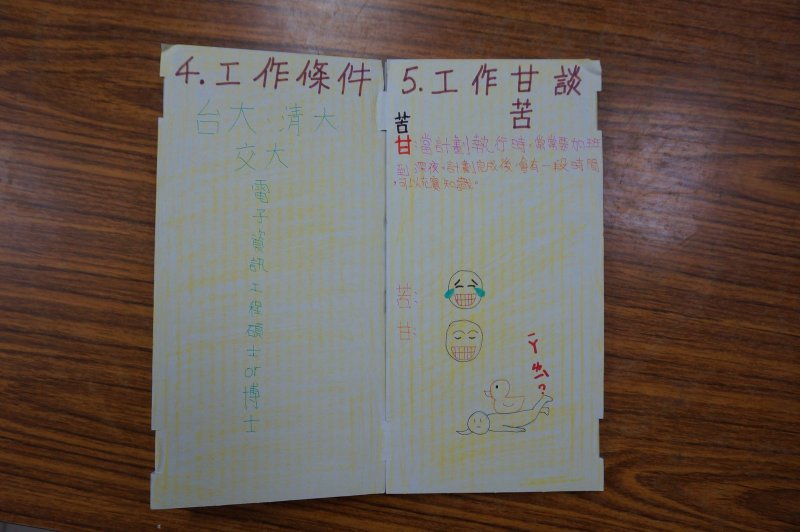 4.工作條件
台大、清大
交大
電子資訊工程碩士or博士
5.工作甘談
苦
苦
甘:當計劃執行時,常常要加班
到深夜。計劃完成後,會有一段時間
,可以充實知識。
苦:
甘: